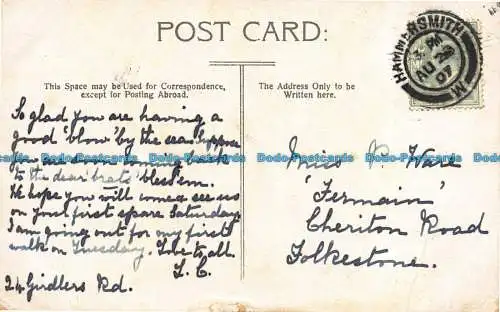 POST CARD:
HAMMERSMITH W
PM
AU
07
This Space may be Used for Correspondence,
except for Posting Abroad.
The Address Only to be
Written here.
So glad you are having a
good 'blow' by the sea. Suppose
you come back
to the dear 'brats' bless'em.
We hope you will come & see us
on your first spare Saturday.
I am going out for my first
walk on Tuesday. Love to all.
L. C.
24 Girdlers Rd.
Miss P. Ware
'Fermain'
Cheriton Road
Folkestone.
Dodo-Postcards Dodo-Postcards Dodo-Postcards Dodo-Postcards